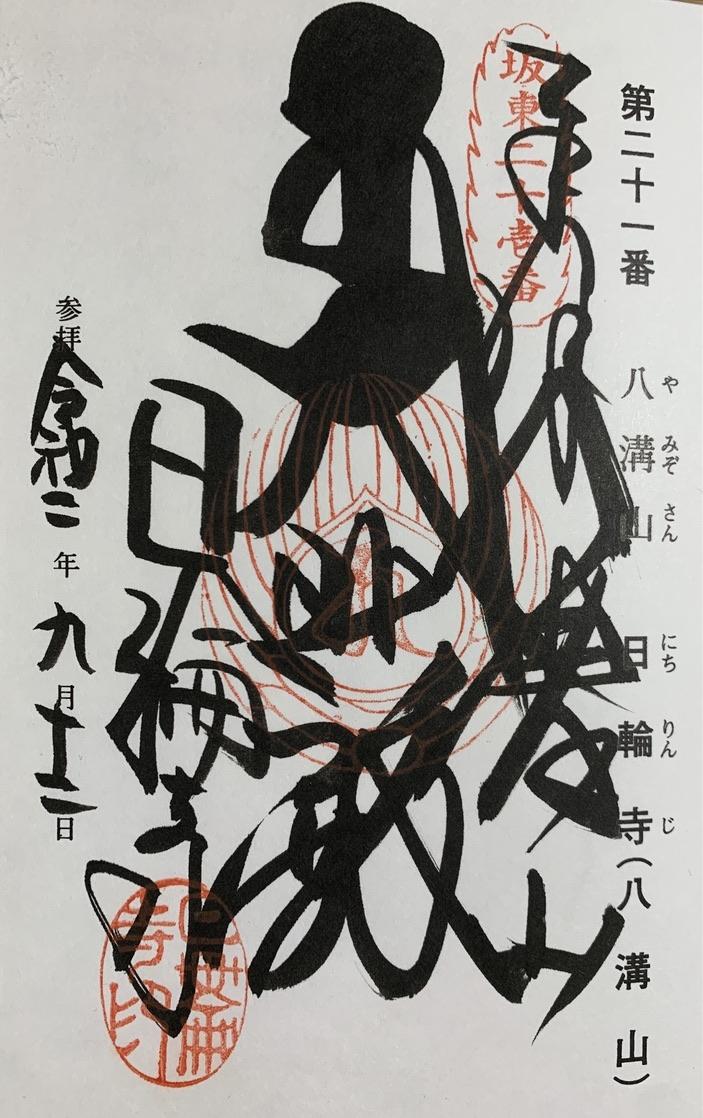 第二十一番 八溝山 日輪寺(八溝山)
や みぞ さん にち りん じ
坂東二十壱番
奉拝 八溝山
大悲殿
日輪寺
日輪寺印
参拝 令和二年九月十二日